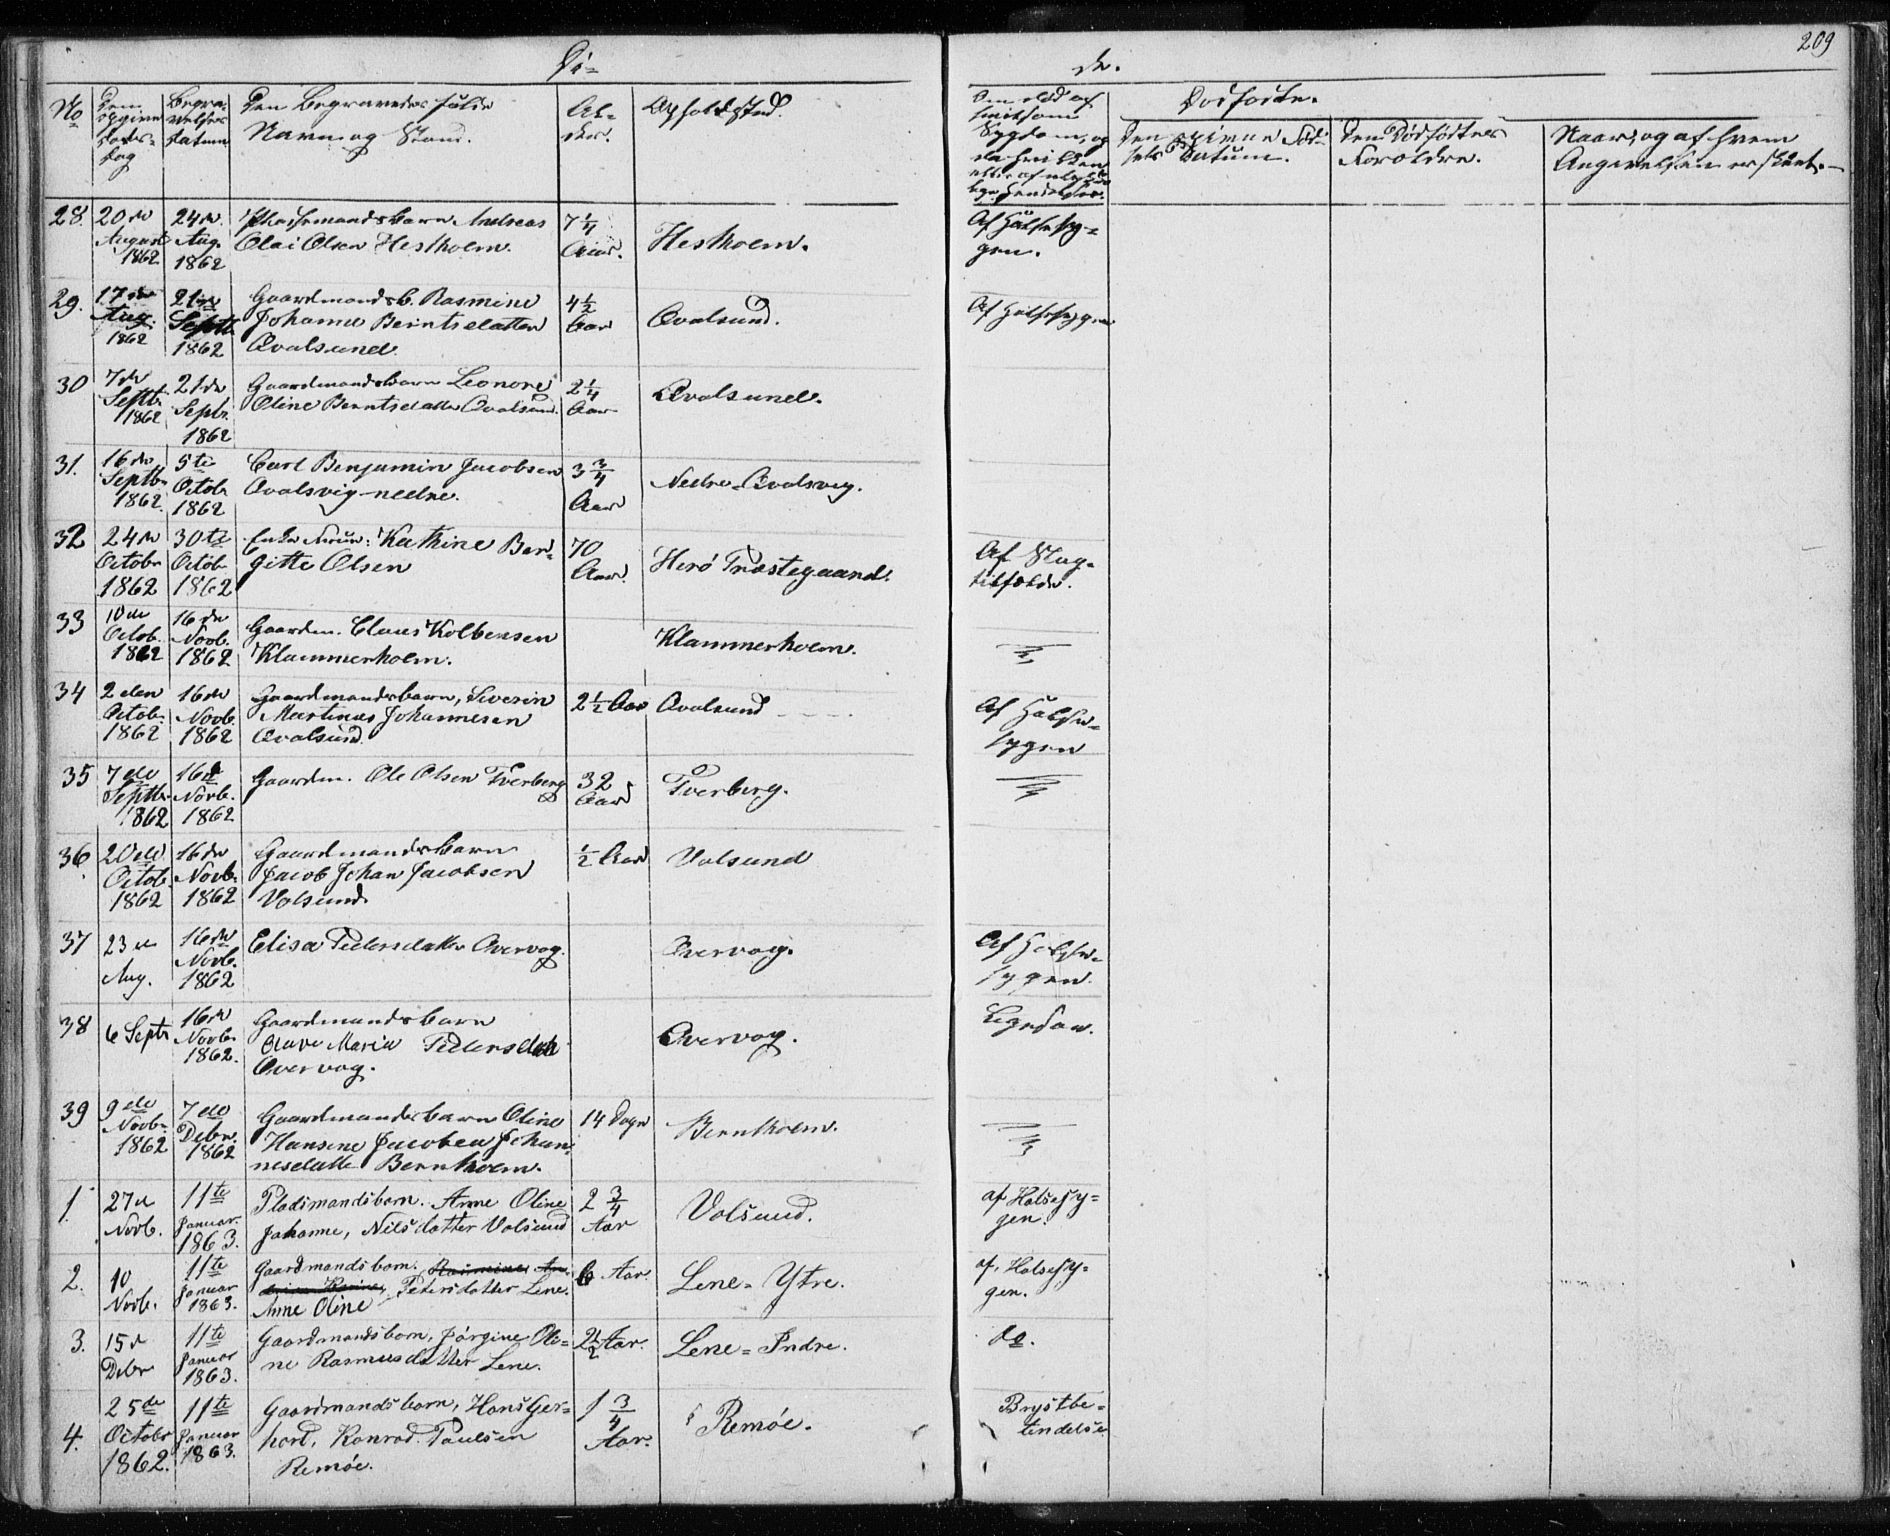 209
Dø-
de.
No
Den opgivne Døds-dag
Begra-velses Datum
Den Begravedes fulde
Navn og Stand.
Al-der.
Opholdssted.
Dødfødte.
Den opgivne Fød-sels Datum.
Den Dødfødtes Forældre.
Naar, og af hvem
Angivelsen er skeet.
28. 20de August 1862 24de Aug. 1862
Andreas
Olai Olsen Hestholm.
7 1/4 Aar.
Hestholm.
Af Halssy-
gen.
29. 17de Aug. 1862 21de Septb 1862
Gaardmandsb. Rasmine
Johanne Berntsdatter
Qvalsund.
4 1/2 Aar
Qvalsund.
Af Halssygen
30 7de Septb. 1862 21de Septr. 1862
Gaardmandsbarn Leonore
Oline Berntsdatter Qvalsund.
2 1/4 Aar
Qvalsund.
31. 16de Septb. 1862 5te Octob 1862
Carl Benjamin Jacobsen
Qvalsvig-nedre.
3 3/4 Aar
Nedre-Qvalsvig.
32 24de Octobr 1862 30te Octob. 1862
Kathine Ber-
gitte Olsen
70 Aar.
Herø Præstegaard.
Af Slag-
tilfælde.
33 10de Octob. 1862 16de Novb. 1862
Gaardm. Claus Kolbensen
Klammerholm.
Klammerholm.
34 2den Octob. 1862 16de Novb. 1862
Gaardmandsbarn, Severin
Martinus Johannesen
Qvalsund.
2 1/2 Aar
Qvalsund
Af Halsse-
sygen
35 7de Septb. 1862 16de Novb. 1862
Gaardm. Ole Olsen Tverberg
32 Aar
Tverberg.
36. 20de Octob. 1862 16de Novb. 1862
Gaardmandsbarn
Jacob Johan Jacobsen
Volsund.
1/2 Aar
Volsund
37 23de Aug. 16de Novb. 1862
Elisa Pedersdatter Overvog.
Overvog.
Af Halse-
sygen.
38 6 Septr 16de Novb. 1862.
Gaardmandsbarn
Olave Maria Pedersdatt
Overvog.
Overvog.
39 9de Novb. 1862 7de Debr. 1862
Gaardmandsbarn Oline
Hansine Jacobea Johan-
nesdatte Bernholm.
14 Dage
Bernholm.
1. 27de Novb. 11te Januar. 1863.
Pladsmandsbarn. Anne Oline
Johanne, Nilsdatter Volsund
2 3/4 Aar
Volsund.
af Halsesy-
gen.
2. 10 Novb. 11te Januar 1863.
Gaardmandsbarn.
Petersdatter Lene.
Anne Oline
6 Aar.
Lene-Ytre.
af. Halsesy-
gen.
3. 15de Debr 11te Januar 1863.
Gaardmandsbarn, Jørgine Oli-
ne Rasmusdatter Lene.
2 1/2 Aar.
Lene-Indre.
do.
4. 25de Octobr 1862. 11te Januar 1863.
Gaardmandsbarn, Hans Ger-
hard, Konrad. Paulsen
Remøe.
1 3/4 Aar.
Remøe.
Brystbe-
tendelse